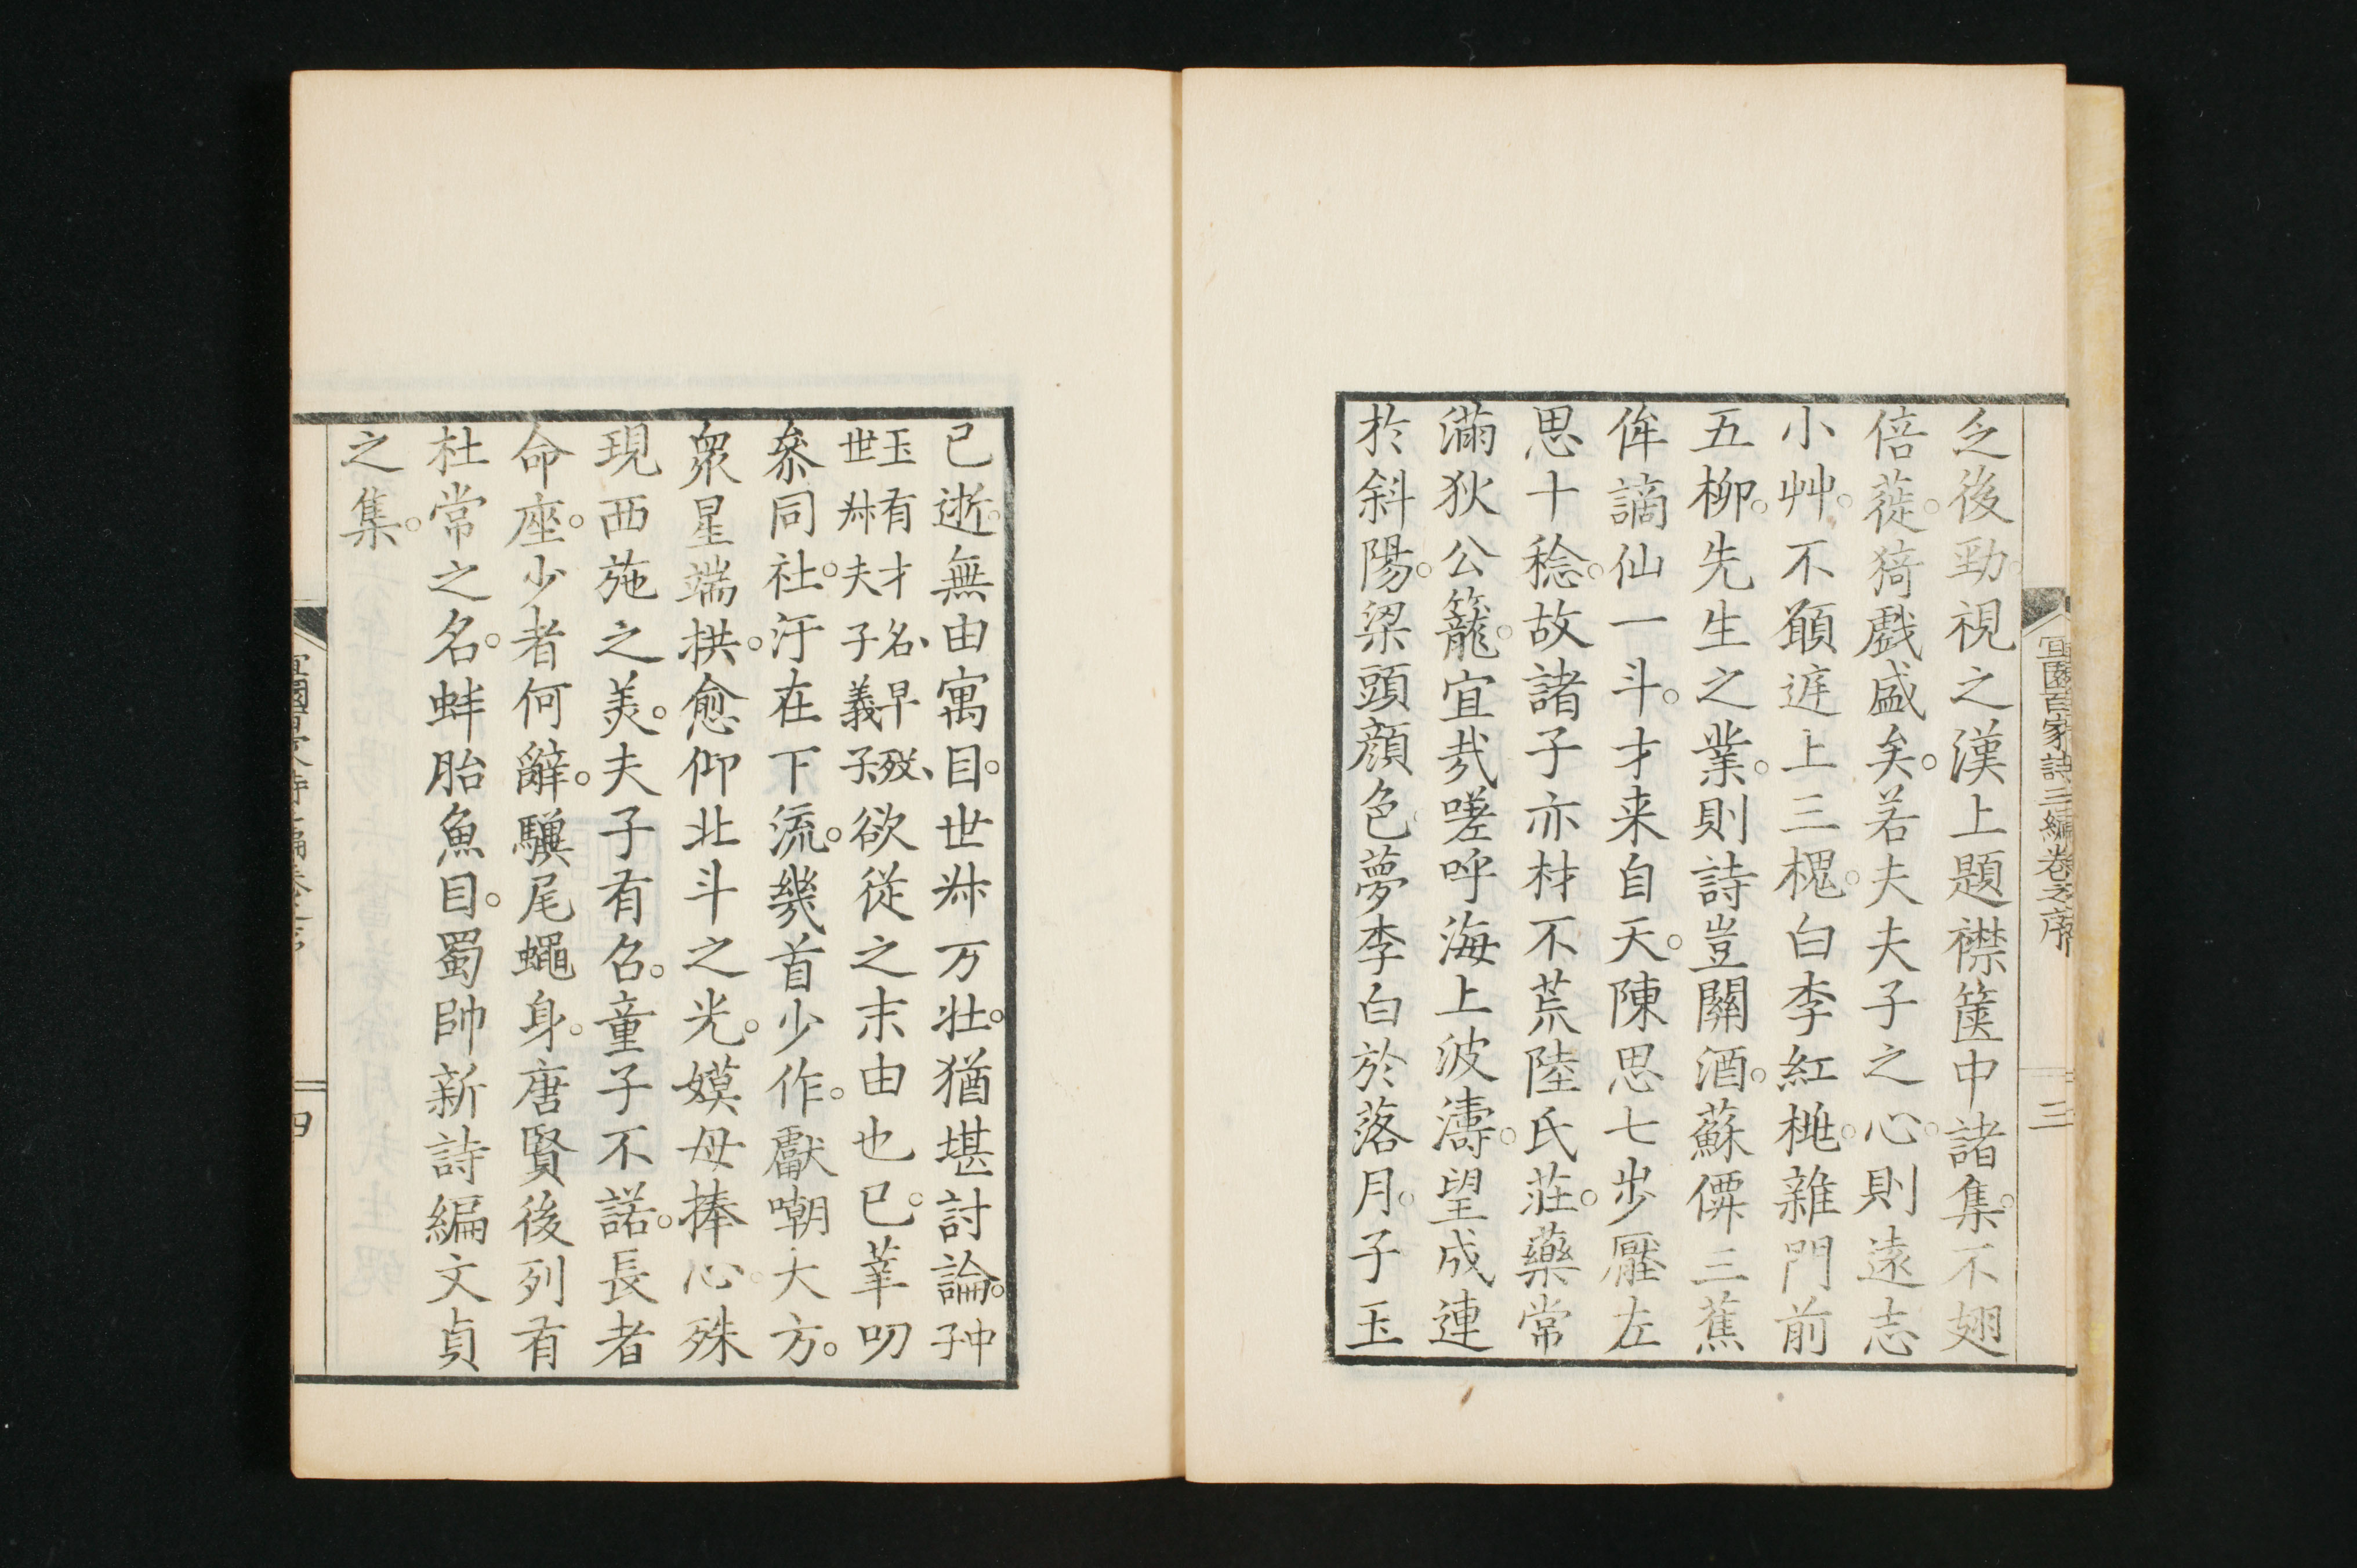 乏後勁視之漢上題襟篋中諸集。不翅
倍蓰。猗戲盛矣。若夫夫子之心。則遠志
小艸。不願遅上三槐。白李紅桃。雜門前
五柳。先生之業。則詩豈關酒。蘇僊三蕉
侔謫仙一斗。才来自天。陳思七步壓左
思十稔。故諸子亦材不荒陸氏莊。藥常
滿狄公籠。宜哉嗟呼海上波濤。望成連
於斜陽。梁頭顔色夢李白於落月。子玉
已逝。無由寓目。世叔万壯。猶堪討論。子仲
玉有才名、早歿、
世叔夫子義子
欲從之末由也已。茟叨
叅同社。汙在下流。幾首少作。獻嘲大方。
衆星端拱。愈仰北斗之光。嫫母捧心。殊
現西施之美。夫子有命。童子不諾。長者
命座。少者何辭。驥尾蠅身。唐賢後列有
杜常之名。蚌胎魚目。蜀帥新詩編文貞
之集。
宜園百家詩三編卷之序
三
四